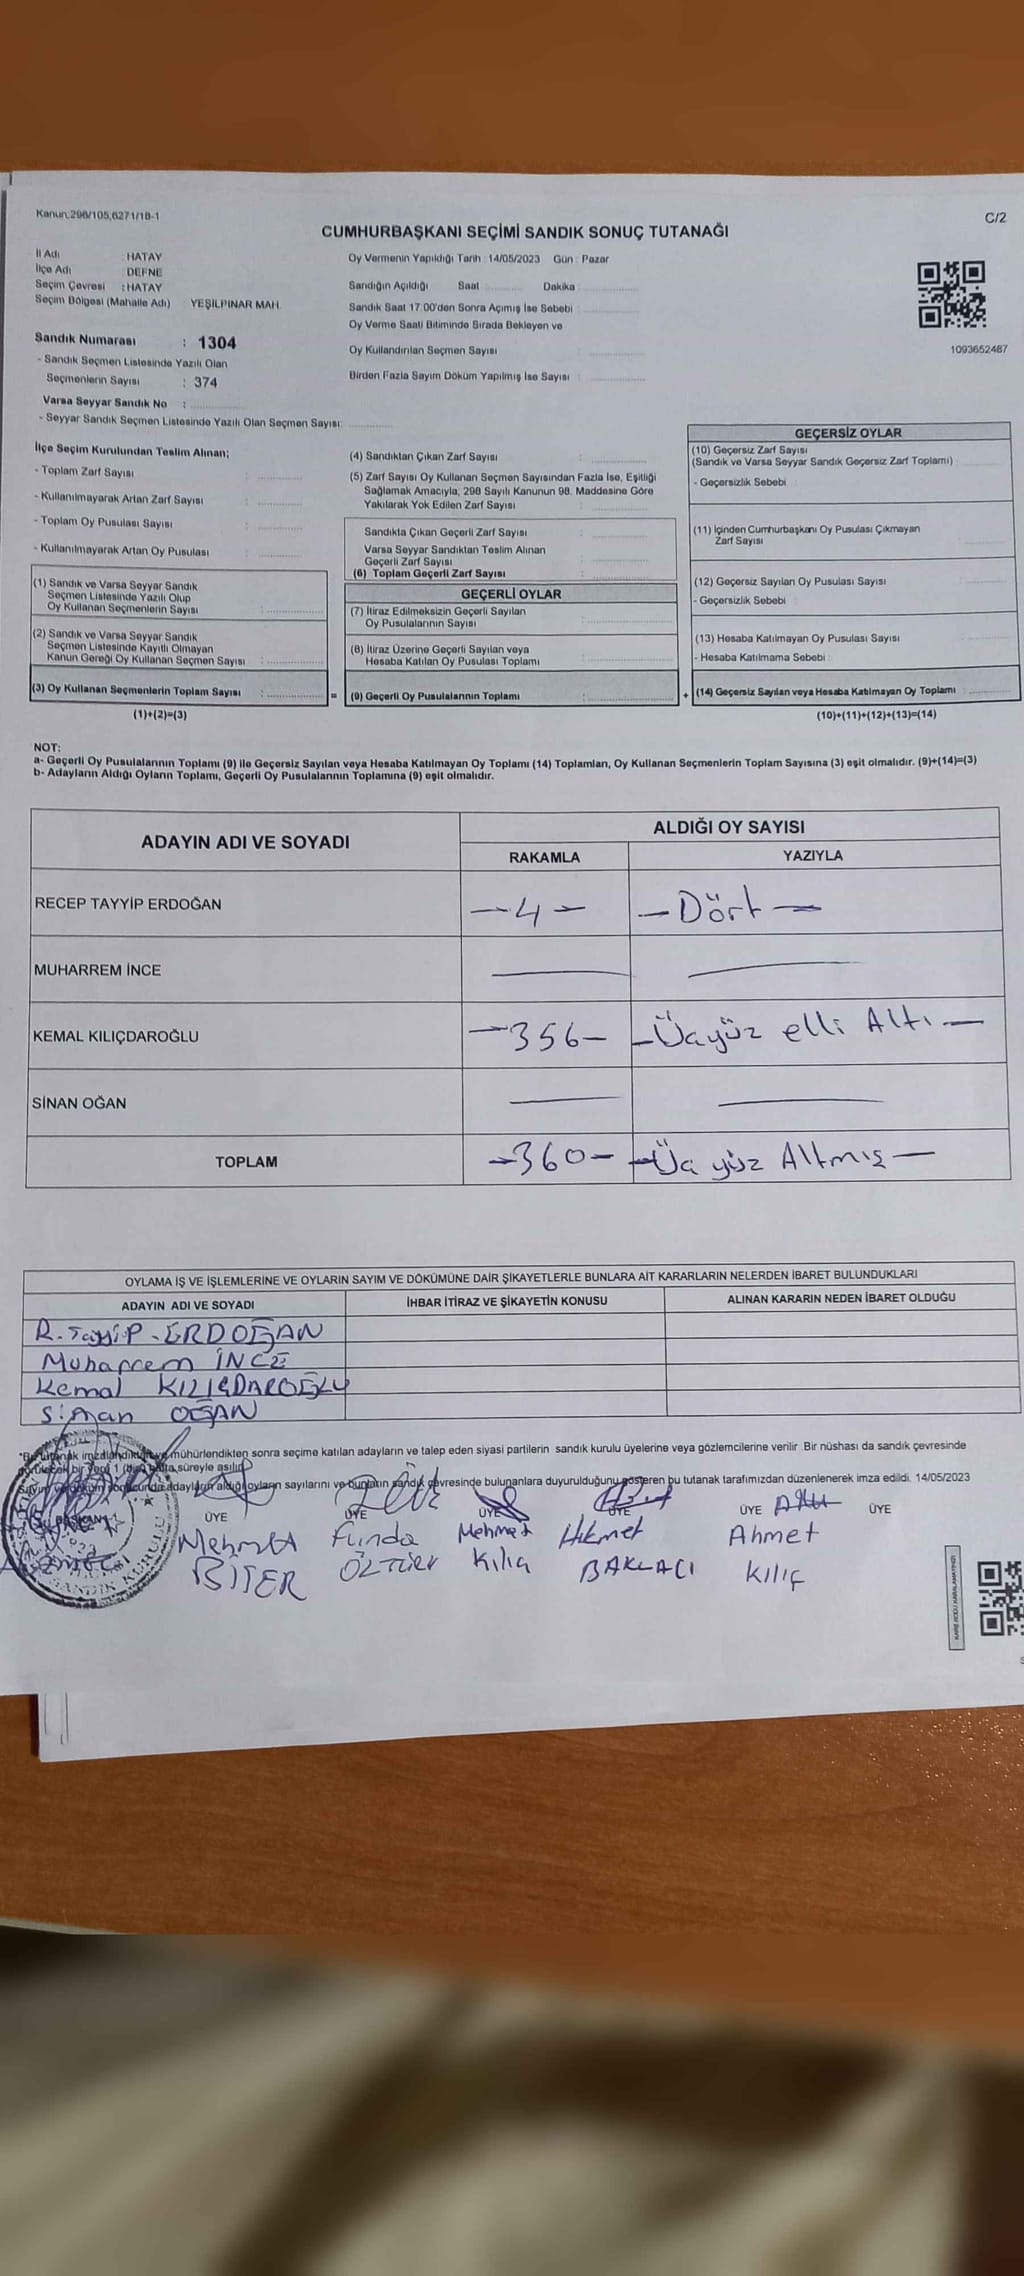 Kanun:298/105,6271/18-1
C/2
CUMHURBAŞKANI SEÇİMİ SANDIK SONUÇ TUTANAĞI
İl Adı : HATAY
İlçe Adı : DEFNE
Seçim Çevresi : HATAY
Seçim Bölgesi (Mahalle Adı) : YEŞİLPINAR MAH.
Oy Vermenin Yapıldığı Tarih : 14/05/2023 Gün : Pazar
Sandığın Açıldığı Saat Dakika :
Sandık Saat 17:00'den Sonra Açımış İse Sebebi :
Oy Verme Saati Bitiminde Sırada Bekleyen ve
Oy Kullandırılan Seçmen Sayısı :
Birden Fazla Sayım Döküm Yapılmış İse Sayısı :
1093652487
Sandık Numarası : 1304
- Sandık Seçmen Listesinde Yazılı Olan
Seçmenlerin Sayısı : 374
Varsa Seyyar Sandık No :
- Seyyar Sandık Seçmen Listesinde Yazılı Olan Seçmen Sayısı:
İlçe Seçim Kurulundan Teslim Alınan;
- Toplam Zarf Sayısı :
- Kullanılmayarak Artan Zarf Sayısı :
- Toplam Oy Pusulası Sayısı :
- Kullanılmayarak Artan Oy Pusulası :
(1) Sandık ve Varsa Seyyar Sandık
Seçmen Listesinde Yazılı Olup
Oy Kullanan Seçmenlerin Sayısı :
(2) Sandık ve Varsa Seyyar Sandık
Seçmen Listesinde Kayıtlı Olmayan
Kanun Gereği Oy Kullanan Seçmen Sayısı :
(3) Oy Kullanan Seçmenlerin Toplam Sayısı :
(1)+(2)=(3)
(4) Sandıktan Çıkan Zarf Sayısı :
(5) Zarf Sayısı Oy Kullanan Seçmen Sayısından Fazla İse, Eşitliği
Sağlamak Amacıyla; 298 Sayılı Kanunun 98. Maddesine Göre
Yakılarak Yok Edilen Zarf Sayısı :
Sandıkta Çıkan Geçerli Zarf Sayısı :
Varsa Seyyar Sandıktan Teslim Alınan
Geçerli Zarf Sayısı :
(6) Toplam Geçerli Zarf Sayısı :
GEÇERLİ OYLAR
(7) İtiraz Edilmeksizin Geçerli Sayılan
Oy Pusulalarının Sayısı :
(8) İtiraz Üzerine Geçerli Sayılan veya
Hesaba Katılan Oy Pusulası Toplamı :
= (9) Geçerli Oy Pusulalarının Toplamı :
GEÇERSİZ OYLAR
(10) Geçersiz Zarf Sayısı
(Sandık ve Varsa Seyyar Sandık Geçersiz Zarf Toplamı) :
- Geçersizlik Sebebi :
(11) İçinden Cumhurbaşkanı Oy Pusulası Çıkmayan
Zarf Sayısı :
(12) Geçersiz Sayılan Oy Pusulası Sayısı :
- Geçersizlik Sebebi :
(13) Hesaba Katılmayan Oy Pusulası Sayısı :
- Hesaba Katılmama Sebebi :
+ (14) Geçersiz Sayılan veya Hesaba Katılmayan Oy Toplamı :
(10)+(11)+(12)+(13)=(14)
NOT:
a- Geçerli Oy Pusulalarının Toplamı (9) ile Geçersiz Sayılan veya Hesaba Katılmayan Oy Toplamı (14) Toplamları, Oy Kullanan Seçmenlerin Toplam Sayısına (3) eşit olmalıdır. (9)+(14)=(3)
b- Adayların Aldığı Oyların Toplamı, Geçerli Oy Pusulalarının Toplamına (9) eşit olmalıdır.
ADAYIN ADI VE SOYADI
ALDIĞI OY SAYISI
RAKAMLA YAZIYLA
RECEP TAYYİP ERDOĞAN -4- -Dört-
MUHARREM İNCE
KEMAL KILIÇDAROĞLU -356- -Üçyüz elli Altı-
SİNAN OĞAN
TOPLAM -360- -Üç yüz Altmış-
OYLAMA İŞ VE İŞLEMLERİNE VE OYLARIN SAYIM VE DÖKÜMÜNE DAİR ŞİKAYETLERLE BUNLARA AİT KARARLARIN NELERDEN İBARET BULUNDUKLARI
ADAYIN ADI VE SOYADI İHBAR İTİRAZ VE ŞİKAYETİN KONUSU ALINAN KARARIN NEDEN İBARET OLDUĞU
R. Tayyip. ERDOĞAN
Muharrem İNCE
Kemal KILIÇDAROĞLU
Sinan OĞAN
mühürlendikten sonra seçime katılan adayların ve talep eden siyasi partilerin sandık kurulu üyelerine veya gözlemcilerine verilir. Bir nüshası da sandık çevresinde
süreyle asılır.
adayların aldığı oyların sayılarını ve bunların sandık çevresinde bulunanlara duyurulduğunu gösteren bu tutanak tarafımızdan düzenlenerek imza edildi. 14/05/2023
BAŞKAN ÜYE ÜYE ÜYE ÜYE ÜYE ÜYE
Mehmet Funda Mehmet Hikmet Ahmet
BİTER Kılıç BAKLACI Kılıç
SANDIK KURULU